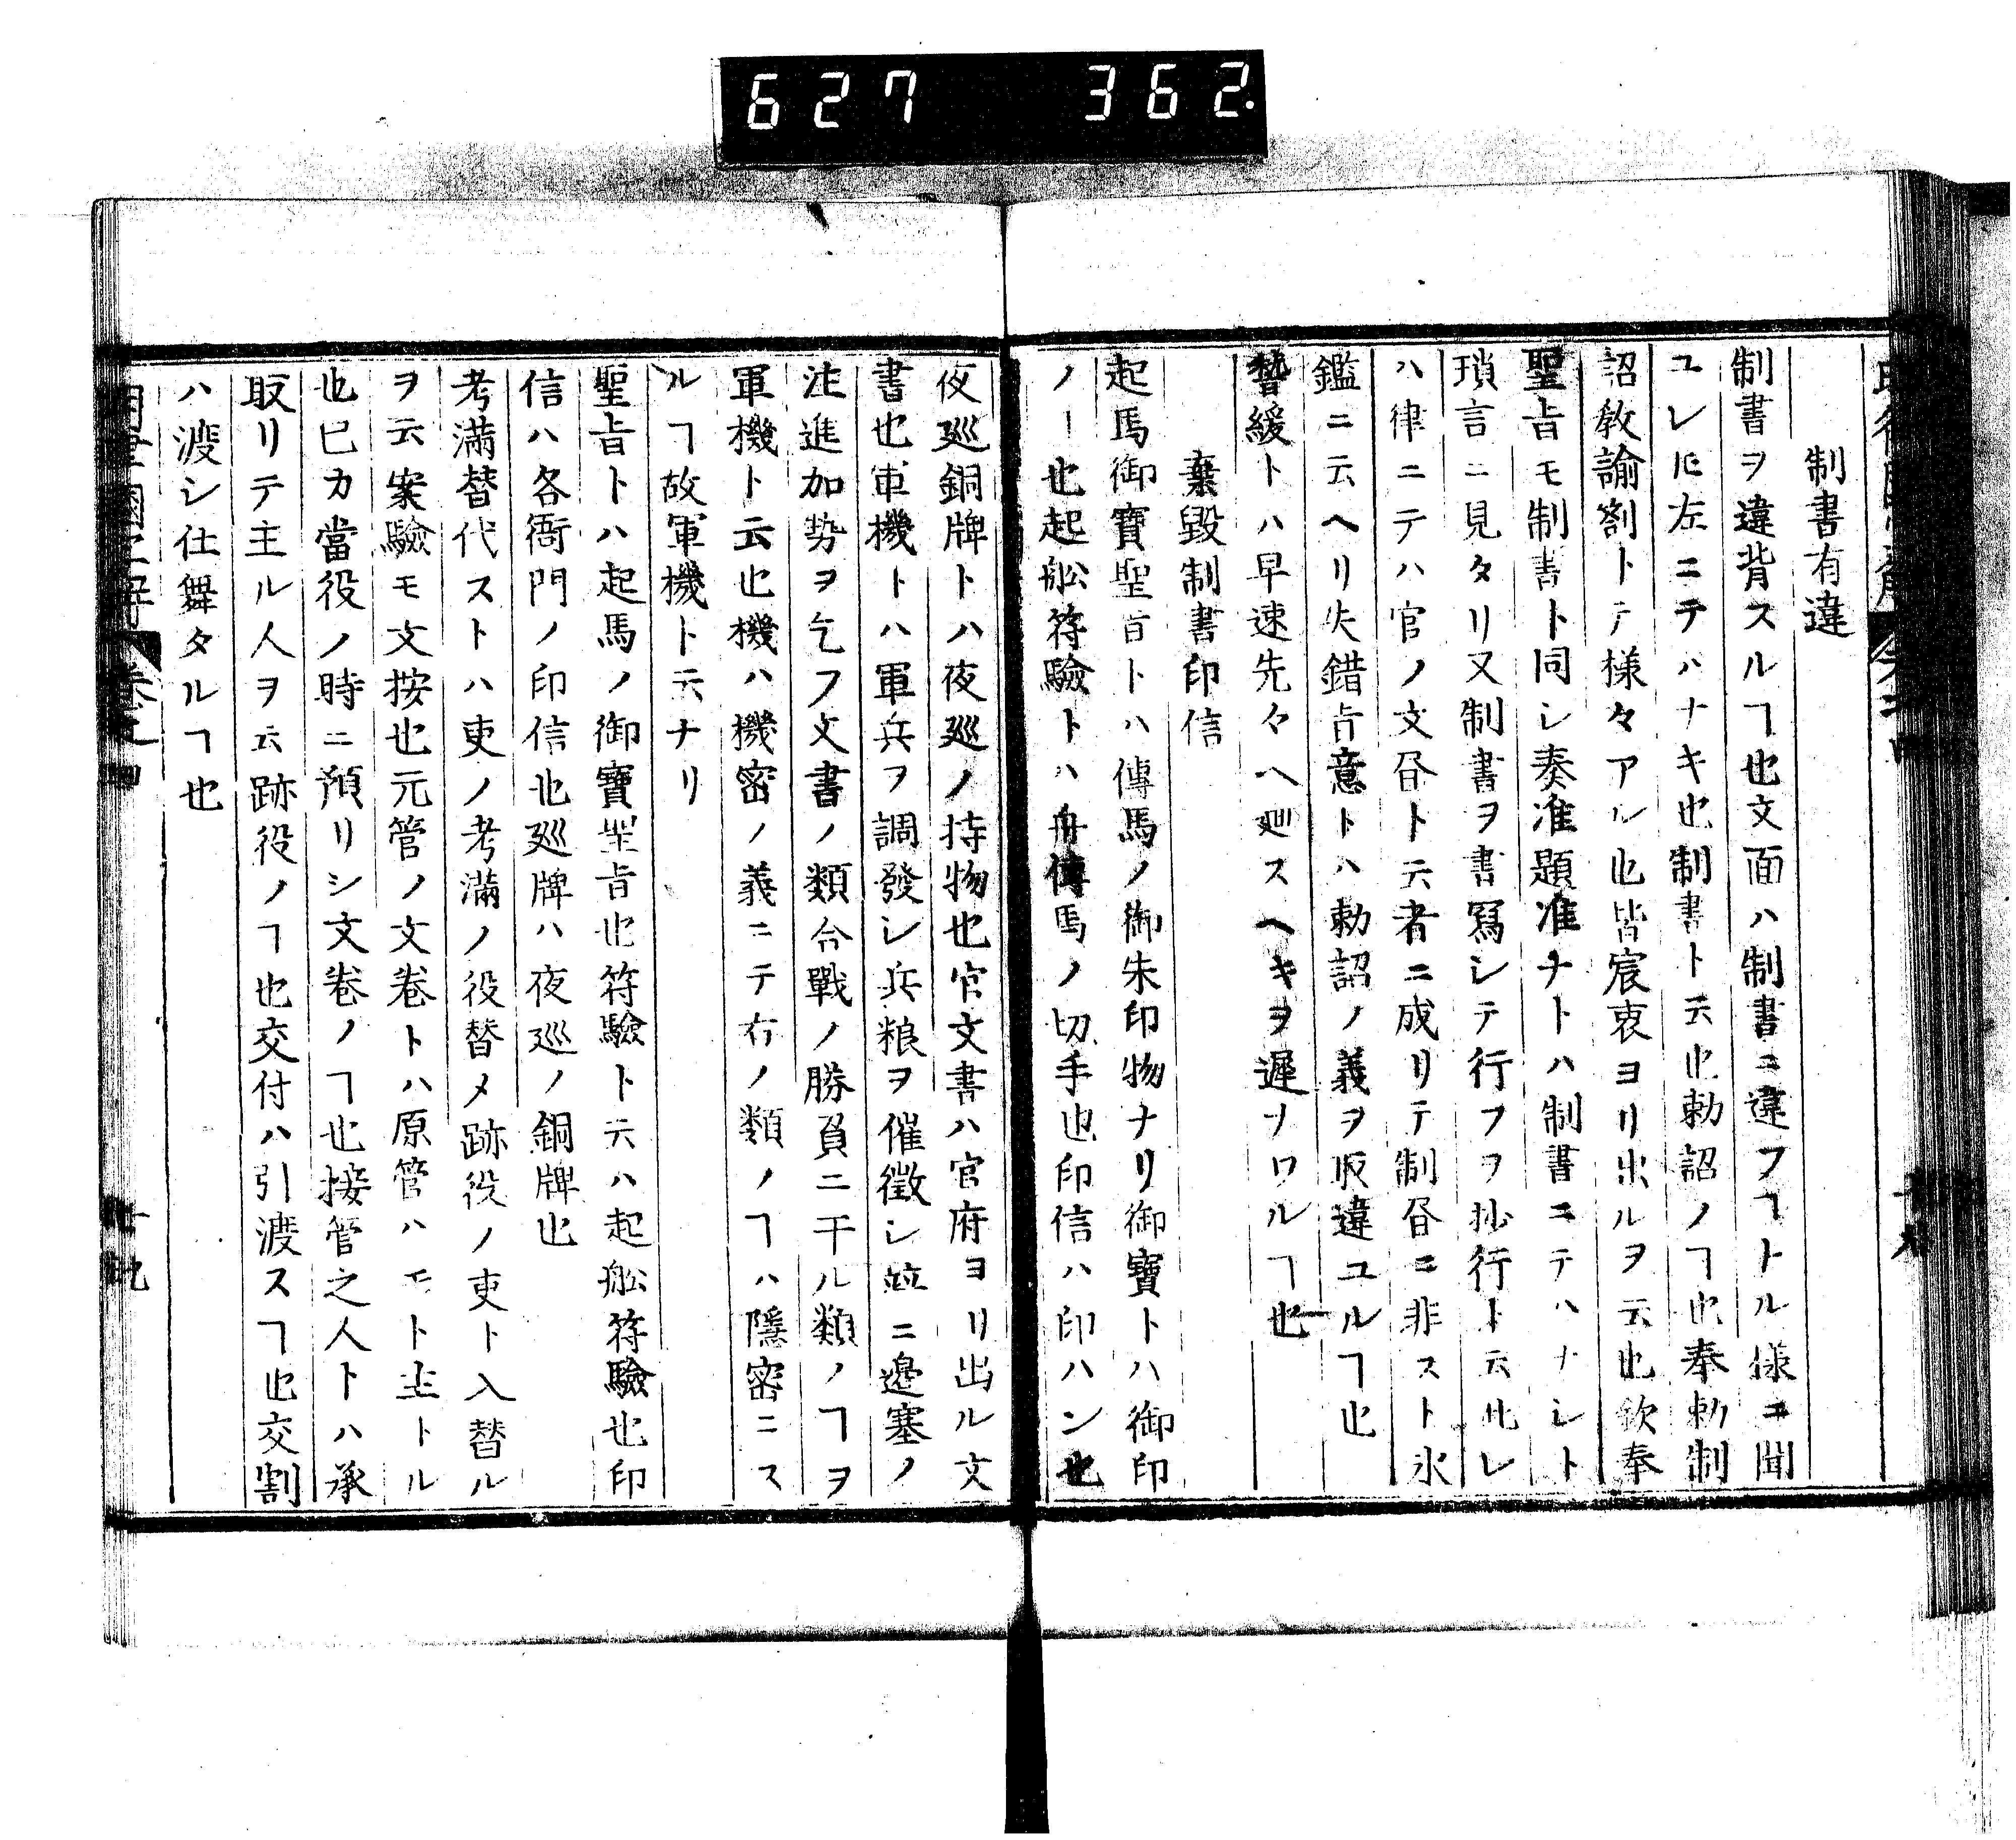 627 362.
制書有違
制書ヲ違背スルヿ也文面ハ制書ニ違フヿトル様ニ聞
ユレ𪜈左ニテハナキ也制書ト云也勅詔ノヿ也奉勅制
詔敎諭劄トテ様々アル也皆宸衷ヨリ出ルヲ云也欽奉
聖旨モ制書ト同シ奏准題准ナトハ制書ニテハナシト
瑣言ニ見タリ又制書ヲ書冩シテ行フヲ抄行ト云此レ
ハ律ニテハ官ノ文書ト云者ニ成リテ制書ニ非スト氷
鑑ニ云ヘリ失錯旨意トハ勅詔ノ義ヲ取違ユルヿ也
稽緩トハ早速先々ヘ廻スヘキヲ遲ナワルヿ也
棄毀制書印信
起馬御寶聖旨トハ傳馬ノ御朱印物ナリ御寶トハ御印
ノヿ也起舩符驗トハ舟傳馬ノ切手也印信ハ印ハン也
夜廵銅牌トハ夜廵ノ持物也官文書ハ官府ヨリ出ル文
書也軍機トハ軍兵ヲ調發シ兵粮ヲ催徴シ並ニ邊塞ノ
注進加勢ヲ乞フ文書ノ類合戰ノ勝負ニ干ル類ノヿヲ
軍機ト云也機ハ機密ノ義ニテ右ノ類ノヿハ隱密ニス
ルヿ故軍機ト云ナリ
聖旨トハ起馬ノ御寶聖旨也符驗ト云ハ起舩符驗也印
信ハ各衙門ノ印信也廵牌ハ夜廵ノ銅牌也
考滿替代ストハ吏ノ考滿ノ役替メ跡役ノ吏ト入替ル
ヲ云案驗モ文按也元管ノ文卷トハ原管ハモト主トル
也已カ當役ノ時ニ預リシ文卷ノヿ也接管之人トハ承
取リテ主ル人ヲ云跡役ノヿ也交付ハ引渡スヿ也交割
ハ渡シ仕舞タルヿ也